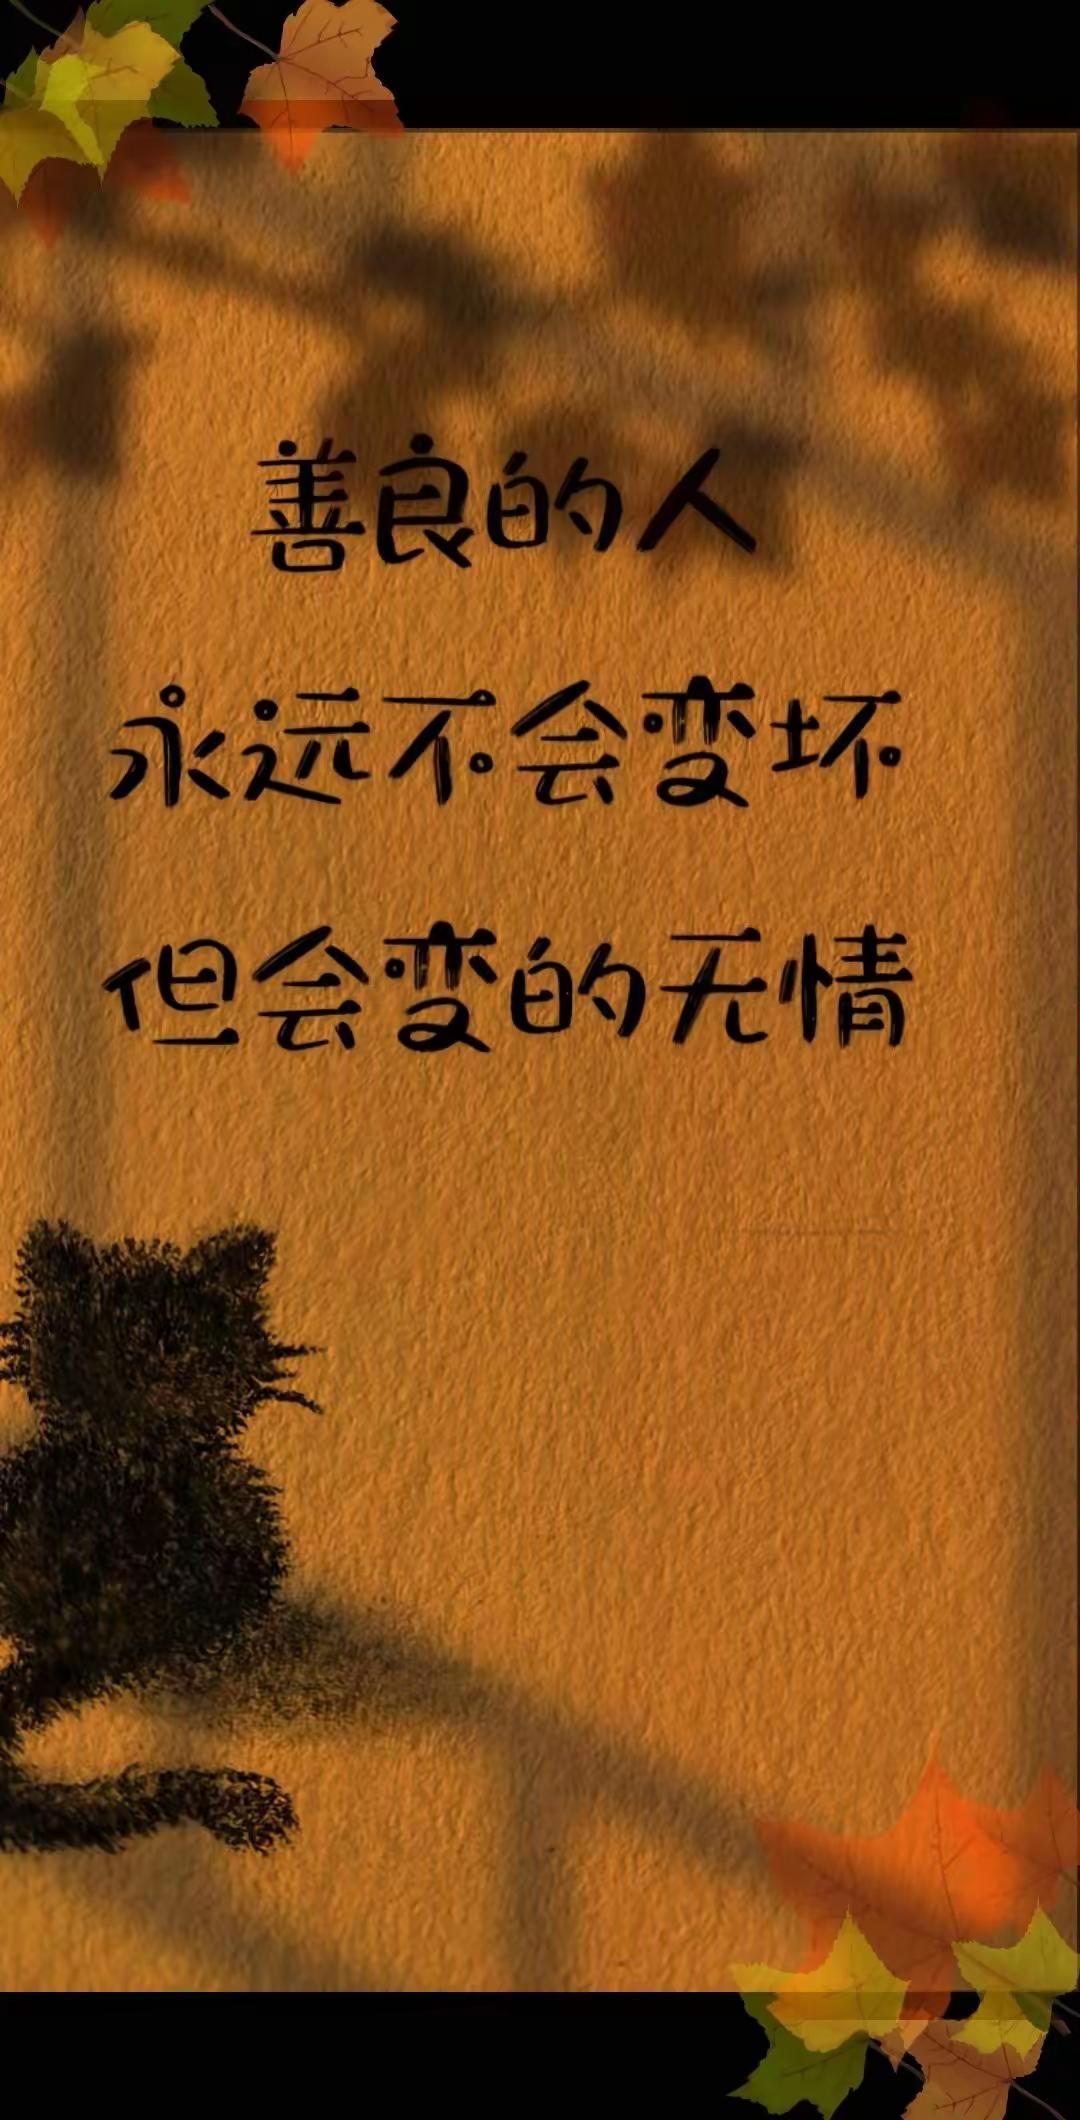 善良的人
永远不会变坏
但会变的无情